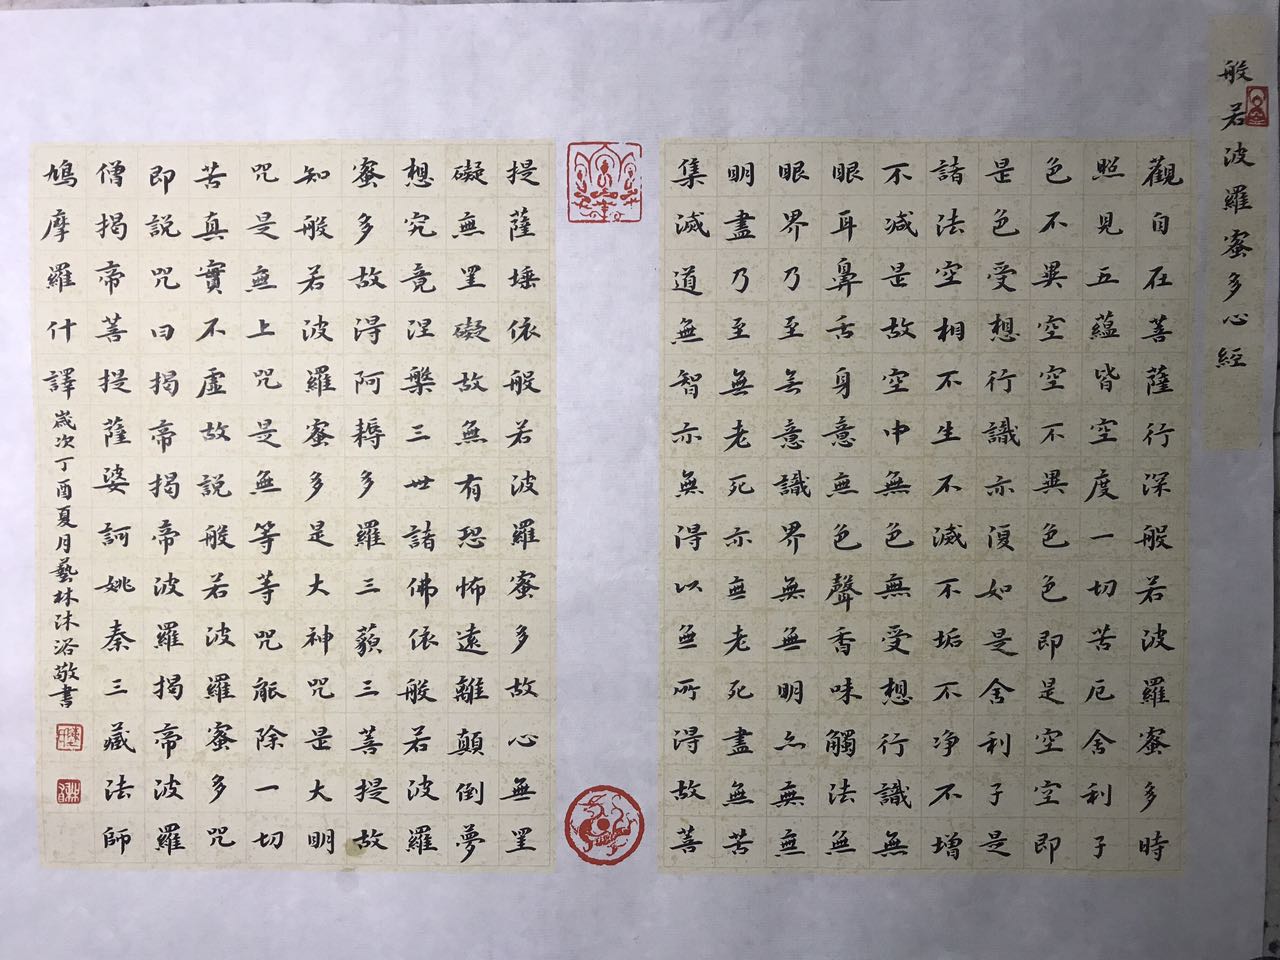 般若波羅蜜多心經
觀自在菩薩行深般若波羅蜜多時
照見五蘊皆空度一切苦厄舍利子
色不異空空不異色色即是空空即
是色受想行識亦復如是舍利子是
諸法空相不生不滅不垢不淨不增
不減是故空中無色無受想行識無
眼耳鼻舌身意無色聲香味觸法無
眼界乃至無意識界無無明亦無無
明盡乃至無老死亦無老死盡無苦
集滅道無智亦無得以無所得故菩
提薩埵依般若波羅蜜多故心無罣
礙無罣礙故無有恐怖遠離顛倒夢
想究竟涅槃三世諸佛依般若波羅
蜜多故得阿耨多羅三藐三菩提故
知般若波羅蜜多是大神咒是大明
咒是無上咒是無等等咒能除一切
苦真實不虛故說般若波羅蜜多咒
即說咒曰揭帝揭帝波羅揭帝波羅
僧揭帝菩提薩婆訶姚秦三藏法師
鳩摩羅什譯歲次丁酉夏月藝林沐浴敬書